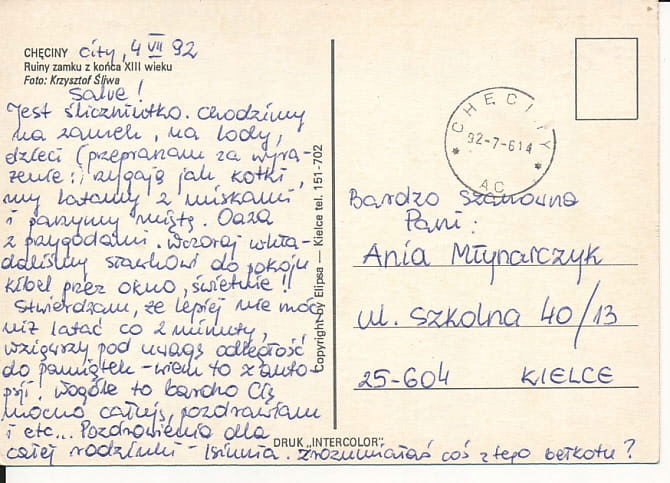 CHĘCINY city, 4 VII 92
Ruiny zamku z końca XIII wieku
Foto: Krzysztof Śliwa
Salve!
Jest śliczniutko. Chodzimy
na zamek, na lody,
dzieci (przepraszam za wyra-
żenie:) rzygają jak kotki,
my latamy z miskami
i parzymy miętę. Oaza
z przygodami. Wczoraj wkła-
daliśmy Stachowi do pokoju
kibel przez okno, świetnie!
Stwierdzam, że lepiej nie móc
niż latać co 2 minuty,
wziąwszy pod uwagę odległość
do - wiem to z auto-
psji. Wogóle to bardzo Cię
mocno całuję, pozdrawiam
i etc... Pozdrowienia dla
całej rodzinki - . Zrozumiałaś coś z tego bełkotu?
Copyright by Elipsa — Kielce tel. 151-702
DRUK „INTERCOLOR”
CHĘCINY
92-7-6 14
AC
Bardzo Szanowna
Pani:
Ania Młynarczyk
ul. Szkolna 40/13
25-604 KIELCE